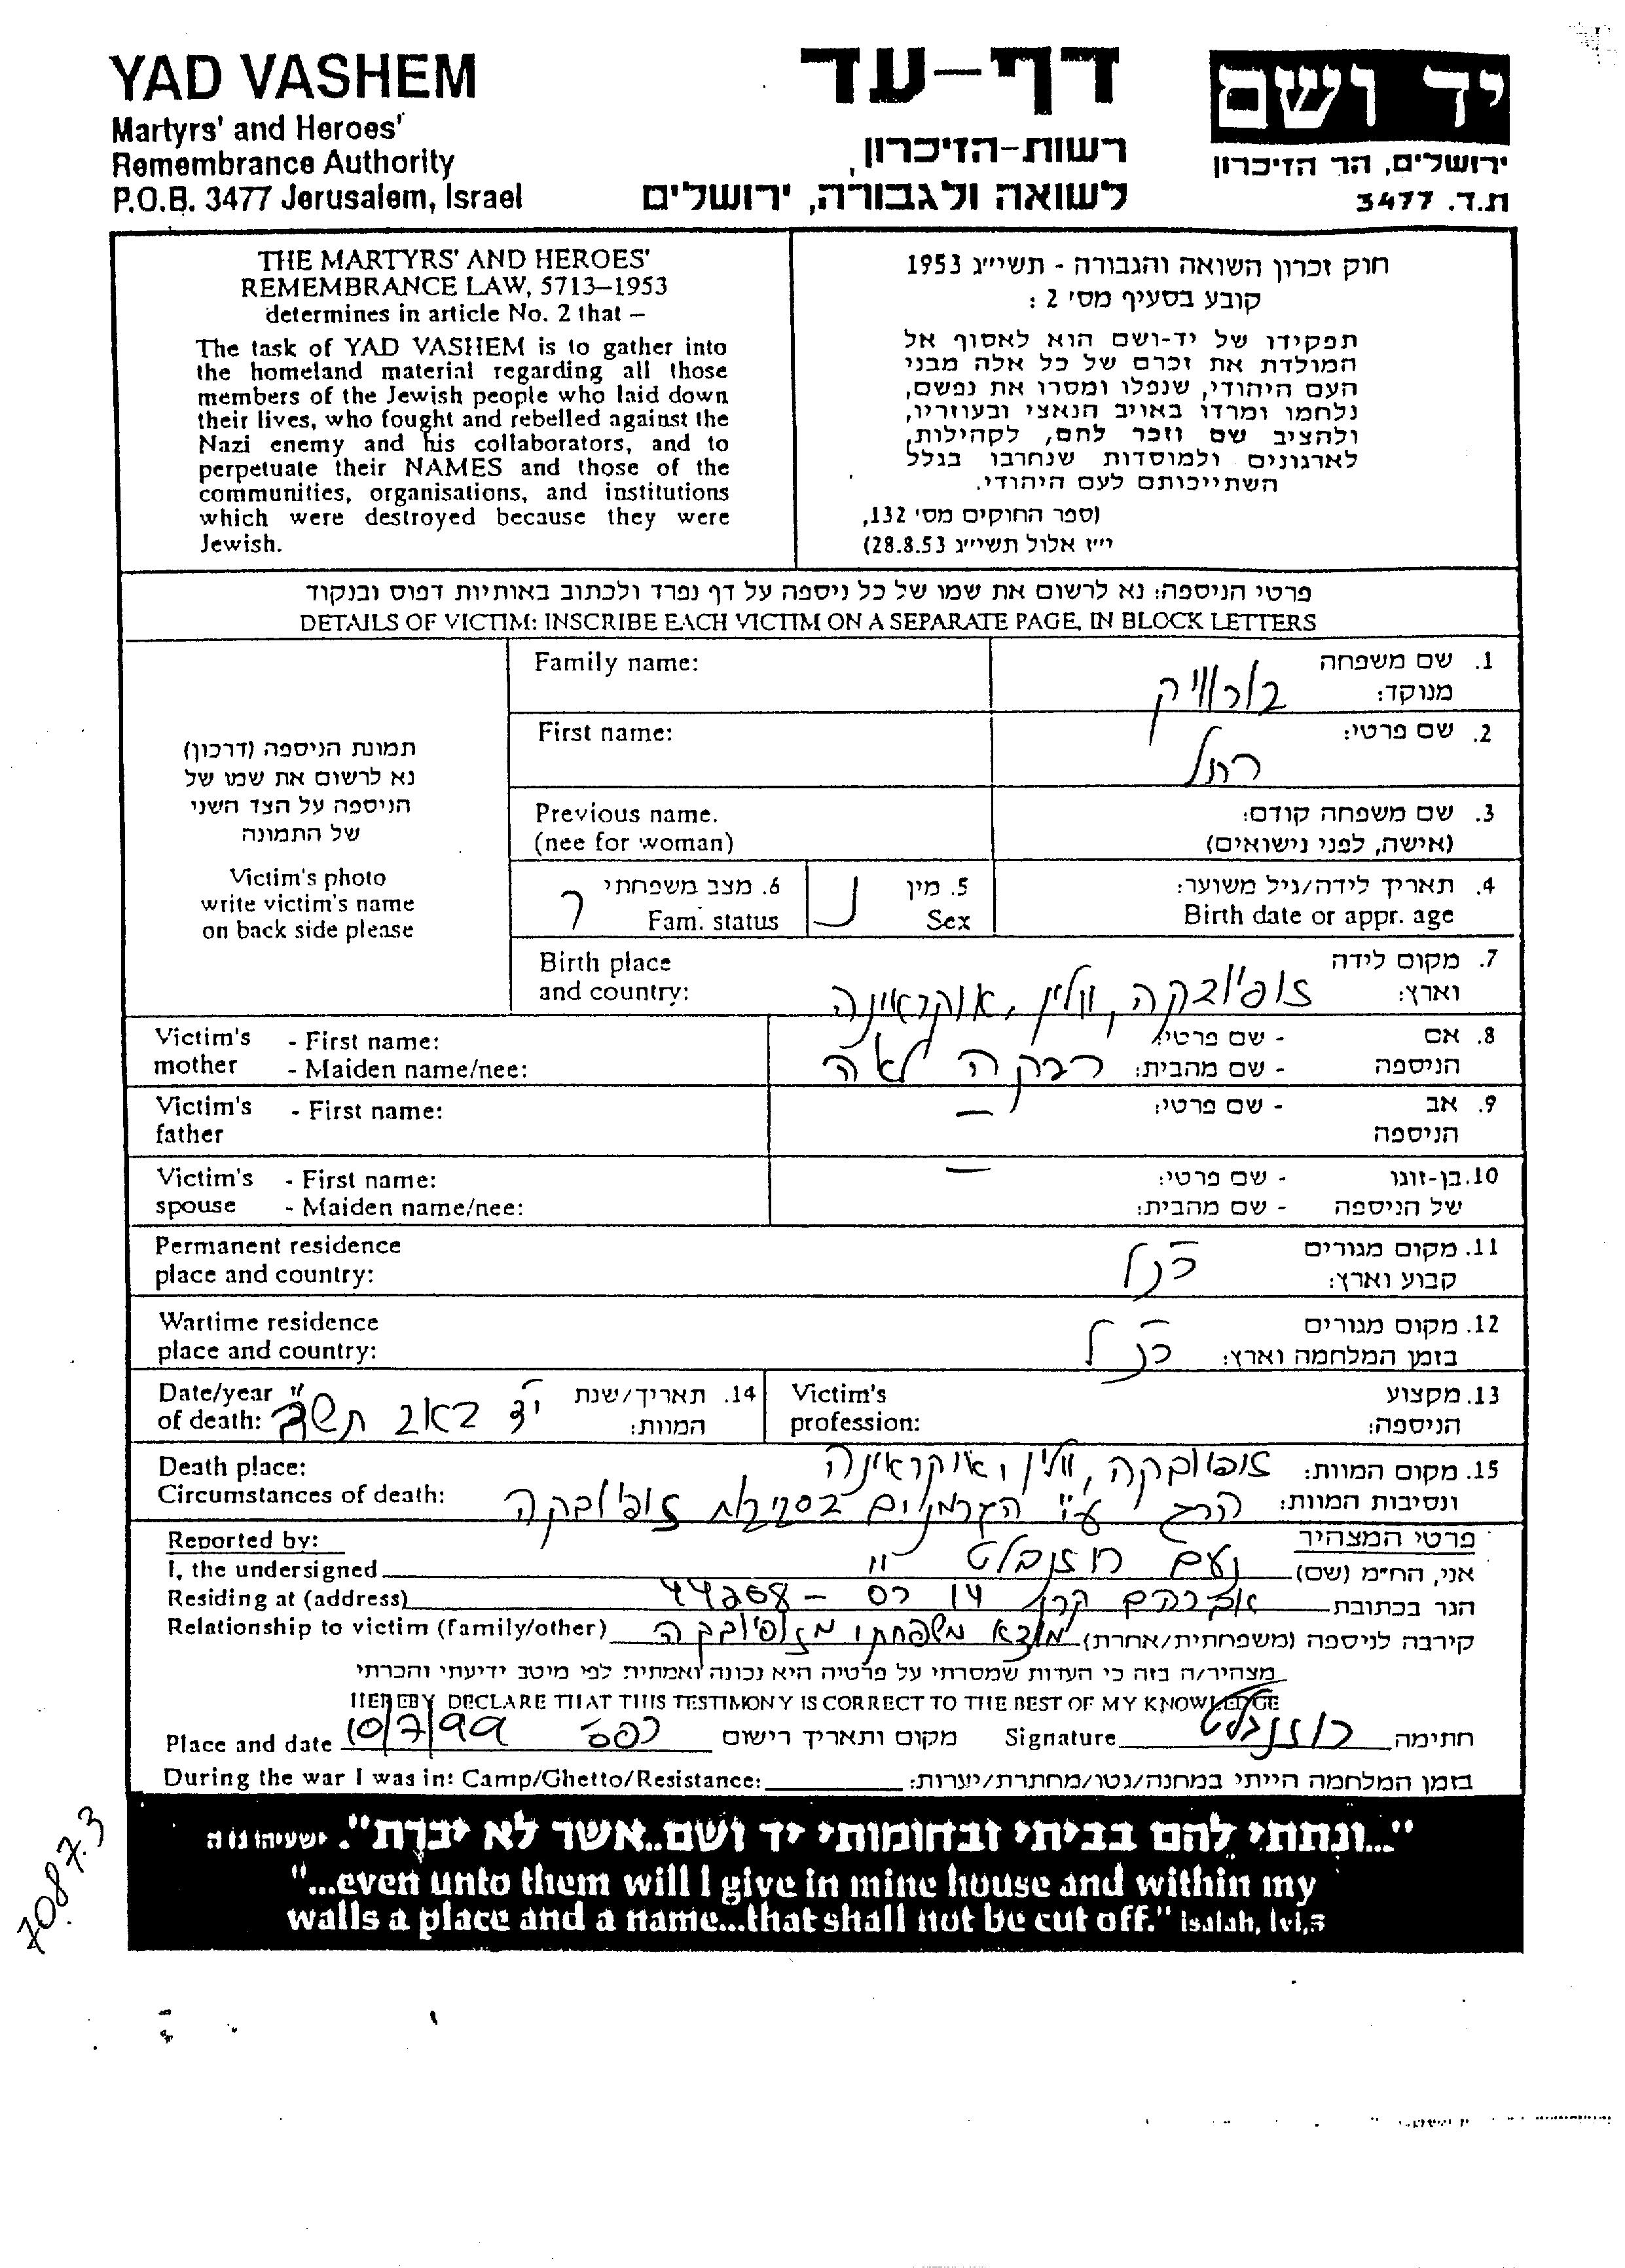 YAD VASHEM
Martyrs' and Heroes'
Remembrance Authority
P.O.B. 3477 Jerusalem, Israel
דף-עד
רשות-הזיכרון
לשואה ולגבורה, ירושלים
יד ושם
ירושלים, הר הזיכרון
ת.ד. 3477
THE MARTYRS' AND HEROES'
REMEMBRANCE LAW, 5713–1953
determines in article No. 2 that –
The task of YAD VASHEM is to gather into
the homeland material regarding all those
members of the Jewish people who laid down
their lives, who fought and rebelled against the
Nazi enemy and his collaborators, and to
perpetuate their NAMES and those of the
communities, organisations, and institutions
which were destroyed because they were
Jewish.
חוק זכרון השואה והגבורה - תשי"ג 1953
קובע בסעיף מס' 2 :
תפקידו של יד-ושם הוא לאסוף אל
המולדת את זכרם של כל אלה מבני
העם היהודי, שנפלו ומסרו את נפשם,
נלחמו ומרדו באויב הנאצי ובעוזריו,
ולהציב שם וזכר להם, לקהילות,
לארגונים ולמוסדות שנחרבו בגלל
השתייכותם לעם היהודי.
(ספר החוקים מס' 132,
י"ז אלול תשי"ג 28.8.53)
פרטי הניספה: נא לרשום את שמו של כל ניספה על דף נפרד ולכתוב באותיות דפוס ובנקוד
DETAILS OF VICTIM: INSCRIBE EACH VICTIM ON A SEPARATE PAGE, IN BLOCK LETTERS
תמונת הניספה (דרכון)
נא לרשום את שמו של
הניספה על הצד השני
של התמונה
Victim's photo
write victim's name
on back side please
1. שם משפחה
מנוקד: בורוויק
Family name:
2. שם פרטי: רחל
First name:
3. שם משפחה קודם:
(אישה, לפני נישואים)
Previous name.
(nee for woman)
4. תאריך לידה/גיל משוער:
Birth date or appr. age
5. מין נ
Sex
6. מצב משפחתי ר
Fam. status
7. מקום לידה
וארץ: זופיובקה, וולין, אוקראינה
Birth place
and country:
8. אם - שם פרטי:
הניספה - שם מהבית: רבקה לאה
Victim's - First name:
mother - Maiden name/nee:
9. אב - שם פרטי: –
הניספה
Victim's - First name:
father
10. בן-זוגו - שם פרטי: –
של הניספה - שם מהבית:
Victim's - First name:
spouse - Maiden name/nee:
11. מקום מגורים
קבוע וארץ: כנ"ל
Permanent residence
place and country:
12. מקום מגורים
בזמן המלחמה וארץ: כנ"ל
Wartime residence
place and country:
13. מקצוע
הניספה:
Victim's
profession:
14. תאריך/שנת
המוות: י"ד באב תש"ב
Date/year
of death:
15. מקום המוות: זופיובקה, וולין, אוקראינה
ונסיבות המוות: הרג ע"י הגרמנים בסביבת זופיובקה
Death place:
Circumstances of death:
פרטי המצהיר
Reported by:
אני, הח"מ (שם) נעם רוזנבלט
I, the undersigned
הגר בכתובת אברהם קרן 14 כס - 44268
Residing at (address)
קירבה לניספה (משפחתית/אחרת) מוצא משפחתו מזופיובקה
Relationship to victim (family/other)
מצהיר/ה בזה כי העדות שמסרתי על פרטיה היא נכונה ואמתית לפי מיטב ידיעתי והכרתי
HEREBY DECLARE THAT THIS TESTIMONY IS CORRECT TO THE BEST OF MY KNOWLEDGE
חתימה רוזנבלט Signature
מקום ותאריך רישום כפ"ס 10/7/99 Place and date
בזמן המלחמה הייתי במחנה/גטו/מחתרת/יערות:
During the war I was in: Camp/Ghetto/Resistance:
"...ונתתי להם בביתי ובחומותי יד ושם..אשר לא יכרת". ישעיהו נו ה
"...even unto them will I give in mine house and within my
walls a place and a name...that shall not be cut off." isaiah, lvi,5
70873